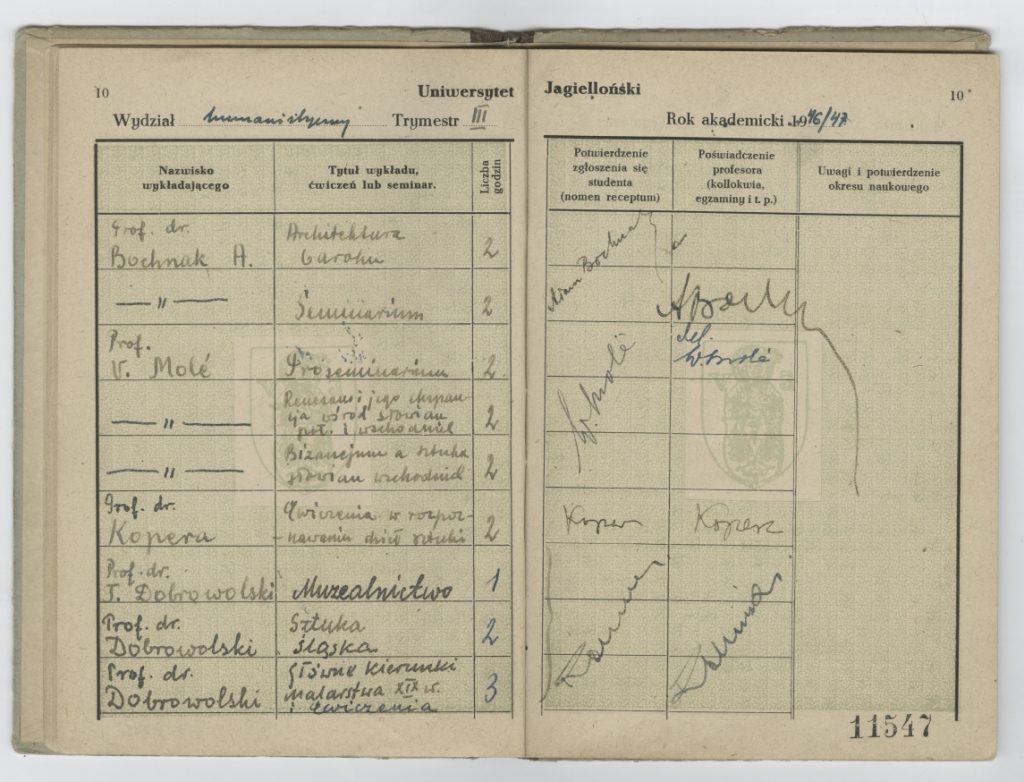 10
Uniwersytet Jagielloński
10
Wydział humanistyczny Trymestr III
Rok akademicki 1946/47
Nazwisko wykładającego
Tytuł wykładu, ćwiczeń lub seminar.
Liczba godzin
Potwierdzenie zgłoszenia się studenta (nomen receptum)
Poświadczenie profesora (kollokwia, egzaminy i t. p.)
Uwagi i potwierdzenie okresu naukowego
Prof. dr. Architektura
Bochnak A. baroku 2
Adam Bochnak
— " — Seminarium 2
ABochn
Prof.
V. Molé Proseminarium 2
W. Molé
W. Molé
— " — Renesans i jego ekspan-
sja wśród słowian 2
poł. i wschodnich
— " — Bizancjum a sztuka 2
słowian wschodnich
Prof. dr. Ćwiczenia w rozpoz-
Kopera nawaniu dzieł sztuki 2
Kopera Kopera
Prof. dr.
T. Dobrowolski Muzealnictwo 1
Prof. dr. Sztuka 2
Dobrowolski śląska
Prof. dr. Główne kierunki
Dobrowolski malarstwa XIX w. 3
i ćwiczenia
11547